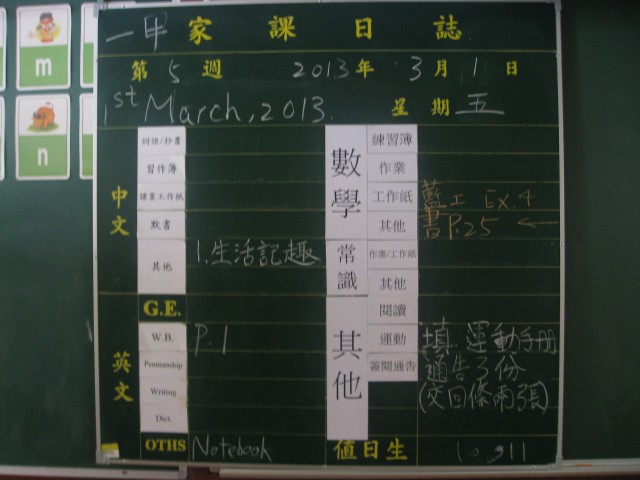 一甲 家課日誌
第 5 週 2013年 3月 1日
1st March, 2013. 星期 五
m
n
中文
詞語/抄書
習作簿
課業工作紙
默書
其他 1.生活記趣
數學
練習簿
作業
工作紙 藍工 Ex.4
其他 書P.25 ←
常識
作業/工作紙
其他
英文
G.E.
W.B. P.1
Penmanship
Writing
Dict.
OTHS Notebook
其他
閱讀
運動 填運動手冊
簽閱通告 通告3份
(交回條兩張)
值日生 10, 911